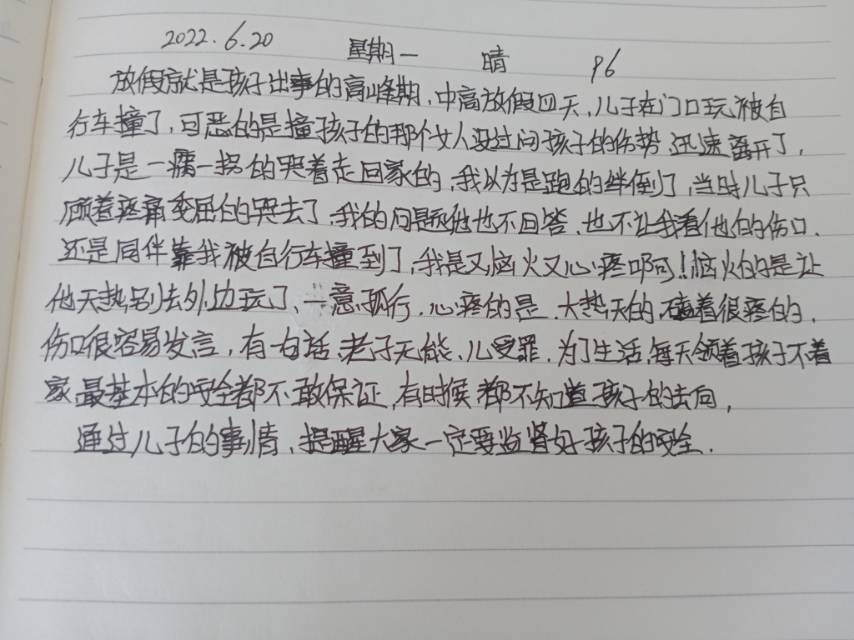 2022.6.20 星期一 晴 96
放假就是孩子出事的高峰期，中高放假四天，儿子在门口玩被自
行车撞了，可恶的是撞孩子的那个女人没过问孩子的伤势 迅速离开了，
儿子是一瘸一拐的哭着走回家的，我以为是跑的绊倒了，当时儿子只
顾着疼痛委屈的哭去了，我的问题他也不回答，也不让我看他的伤口，
还是同伴靠我被自行车撞到了，我是又恼火又心疼啊！恼火的是让
他天热别去外边玩了，一意孤行，心疼的是，大热天的，磕着很疼的，
伤口很容易发言，有句话，老子无能，儿受罪，为了生活，每天领着孩子不着
家，最基本的安全都不敢保证，有时候都不知道孩子的去向，
通过儿子的事情，提醒大家一定要监督好孩子的安全.